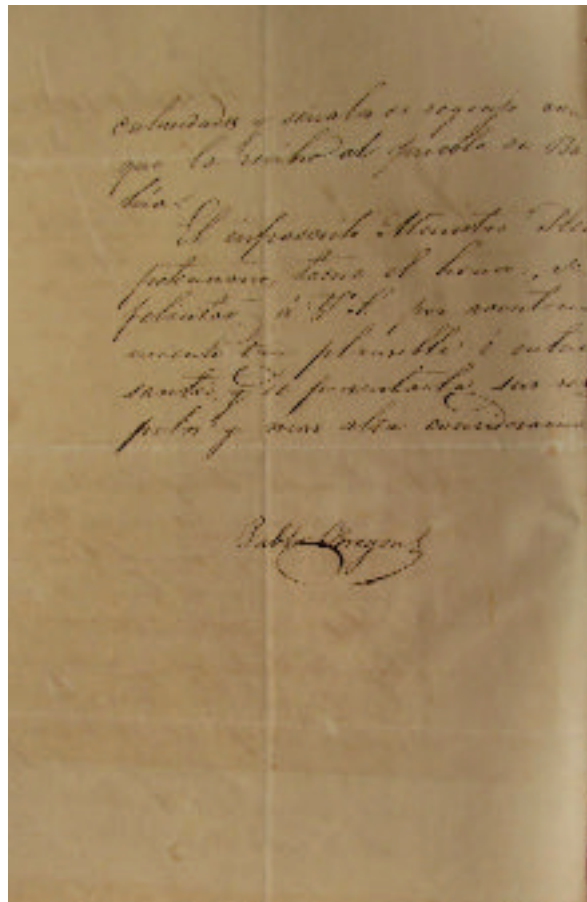 y señales de regocijo con
que lo recibió el pueblo de Ba
hía.
El infrascrito Ministro Pleni
potenciario, tiene el honor, de
felicitar á V.E. por acontec
imiento tan plausible é intere
sante, y de presentarle, sus res
petos y mas alta consideracion
Pablo Obregon